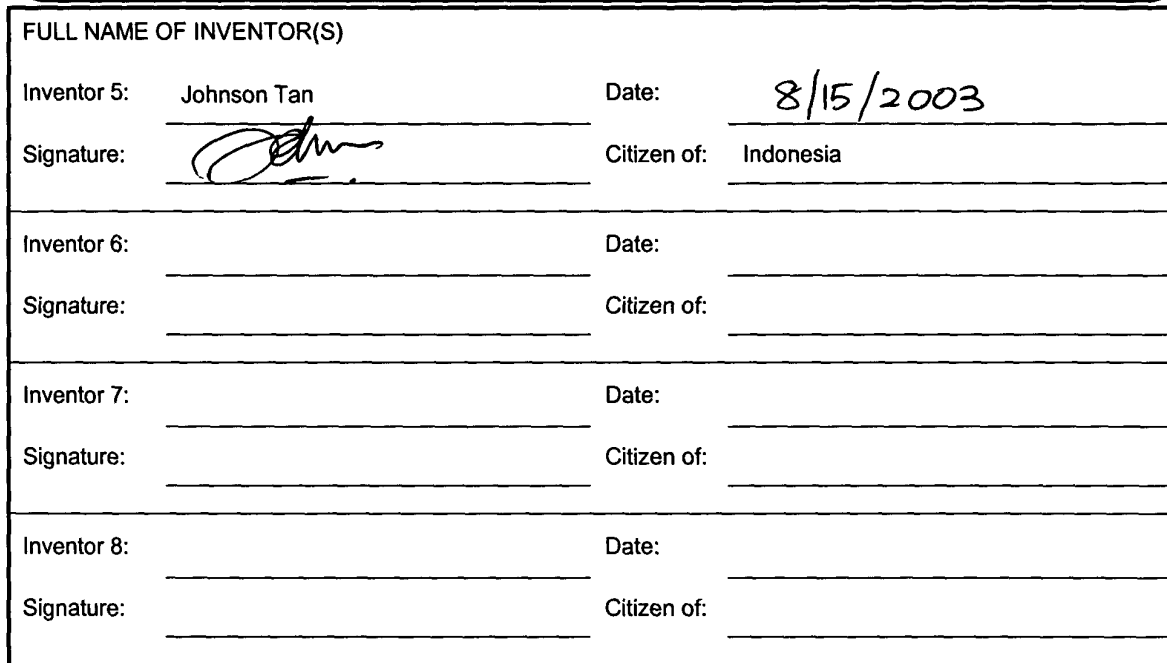 FULL NAME OF INVENTOR(S)
Inventor 5: Johnson Tan Date: 8/15/2003
Signature: Citizen of: Indonesia
Inventor 6: Date:
Signature: Citizen of:
Inventor 7: Date:
Signature: Citizen of:
Inventor 8: Date:
Signature: Citizen of: